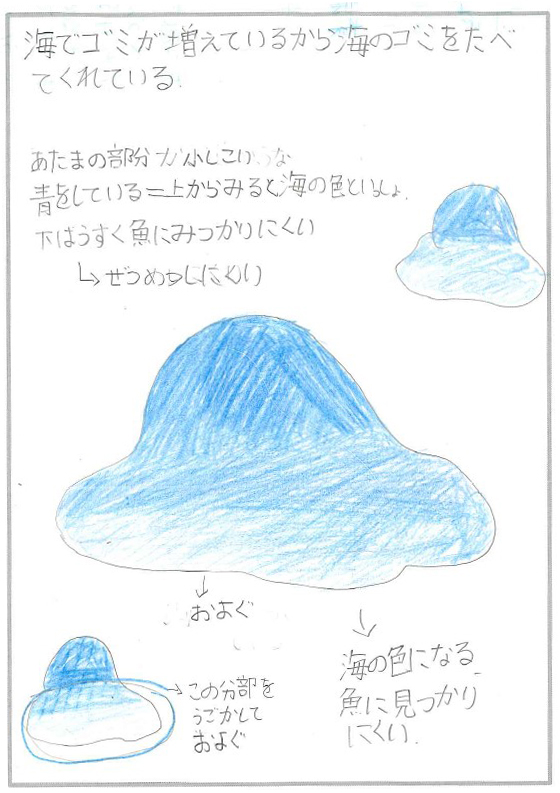 海でゴミが増えているから海のゴミをたべ
てくれている.
あたまの部分が小しこい
青をしている=上からみると海の色といっしょ.
下はうすく魚にみつかりにくい
↳ぜつめつしにくい
↓
およぐ
↓
海の色になる
魚に見つかり
にくい.
→この分部を
うごかして
およぐ